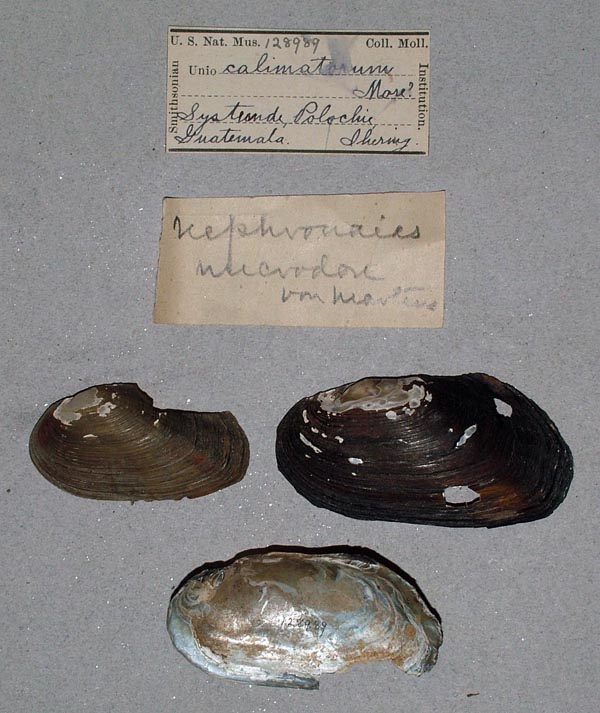 U. S. Nat. Mus. 128989 Coll. Moll.
Unio calimatorum
More?
Polochic
Guatemala. Ihering.
Smithsonian
Institution.
Nephronaias
microdon
von Martens
128989